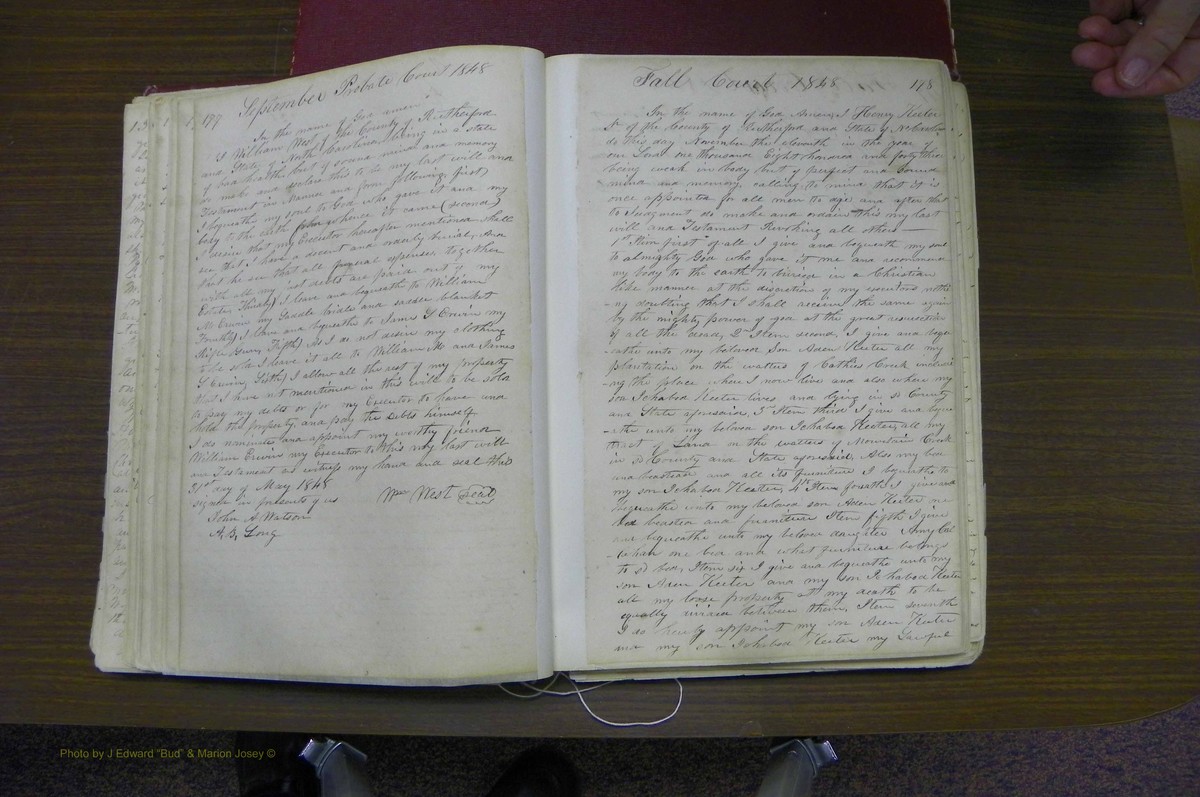 September Probate Court 1848
177
In the name of God amen
I William West of the County of Rutherford
and State of North Carolina being in a state
of bad health but of sound mind and memory
do make and declare this to be my last will and
Testament in Manner and form following first)
I bequeath my soul to God who gave it and my
body to the earth from whence it came (second)
I desire that my Executor hereafter mentioned shall
see that I have a decent and orderly burial, And
that he see that all funeral expenses together
with all my just debts are paid out of my
Estate. Thirdly) I leave and bequeathe to William
M Erwin my Saddle bridle and saddle blanket
Fourthly) I leave and bequeathe to James Y Erwin my
Rifle Gun, Fifth) As I do not desire my clothing
to be sold I leave it all to William M. and James
Y Erwin, Sixth) I allow all the rest of my property
that I have not mentioned in this will to be sold
to pay my debts or for my Executor to have and
hold the property, and pay the debts himself
I do nominate and appoint my worthy friend
William Erwin my Executor to this my last will
and Testament as witness my hand and seal this
31st day of May 1848
signed in presents of us Wm West Seal
John A Watson
A. B. Long
Fall Court 1848 178
In the name of God Amen, I Henry Keeter
Sr of the County of Rutherford and State of No Carolina
do this day November the eleventh in the year of
our Lord one thousand Eight hundred and forty three
being weak in body but of perfect and sound
mind and memory, calling to mind that it is
once appointed for all men to die and after that
to Judgment do make and ordain this my last
will and Testament Revoking all others
1st Item first of all I give and bequeath my soul
to almighty God who gave it me and recommend
my body to the earth to buried in a Christian
like manner at the discretion of my executors nothi
-ng doubting that I shall receive the same again
by the mighty power of god at the great resurrection
of all the dead, 2d Item second, I give and beque
-athe unto my beloved Son Aden Keeter all my
plantation on the watters of Cathies Creek includi
-ng the place where I now live and also where my
son Ichabod Keeter lives and lying in sd County
and State aforesaid, 3d Item third I give and beque
-athe unto my beloved son Ichabod Keeter, all my
tract of Land on the watters of Mountain Creek
in sd County and State aforesaid, Also my bed
and beadstead and all its furniture I bequeathe to
my son Ichabod Keeter, 4th Item fourth I give and
bequeathe unto my beloved son Aden Keeter one
bed beadsted and furniture Item fifth I give
and bequeathe unto my beloved daughter Amy Cal
-lahan one bed and what furniture belongs
to sd bed, Item six I give and bequeathe unto my
son Aden Keeter and my son Ichabod Keeter
all my loose property at my death to be
equally divided between them, Item seventh
I do hereby appoint my son Aden Keeter
and my son Ichabod Keeter my Lawful
Photo by J Edward "Bud" & Marion Josey ©